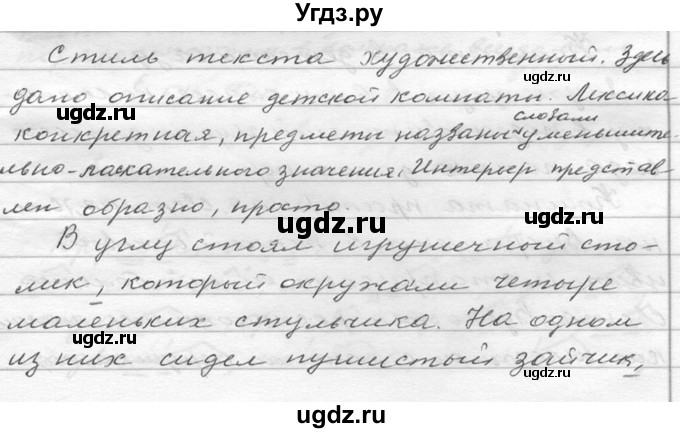 Угдз.ру
Стиль текста художественный. Здесь
ugdz.ru ugdz.ru
дано описание детской комнаты. Лексика
словами
конкретная, предметы названы уменьшите-
льно-ласкательного значения. Интерьер представ-
лен образно, просто.
ugdz.ru ugdz.ru
В углу стоял игрушечный сто-
лик, который окружали четыре
маленьких стульчика. На одном
ugdz.ru
из них сидел пушистый зайчик,
ugdz.ru